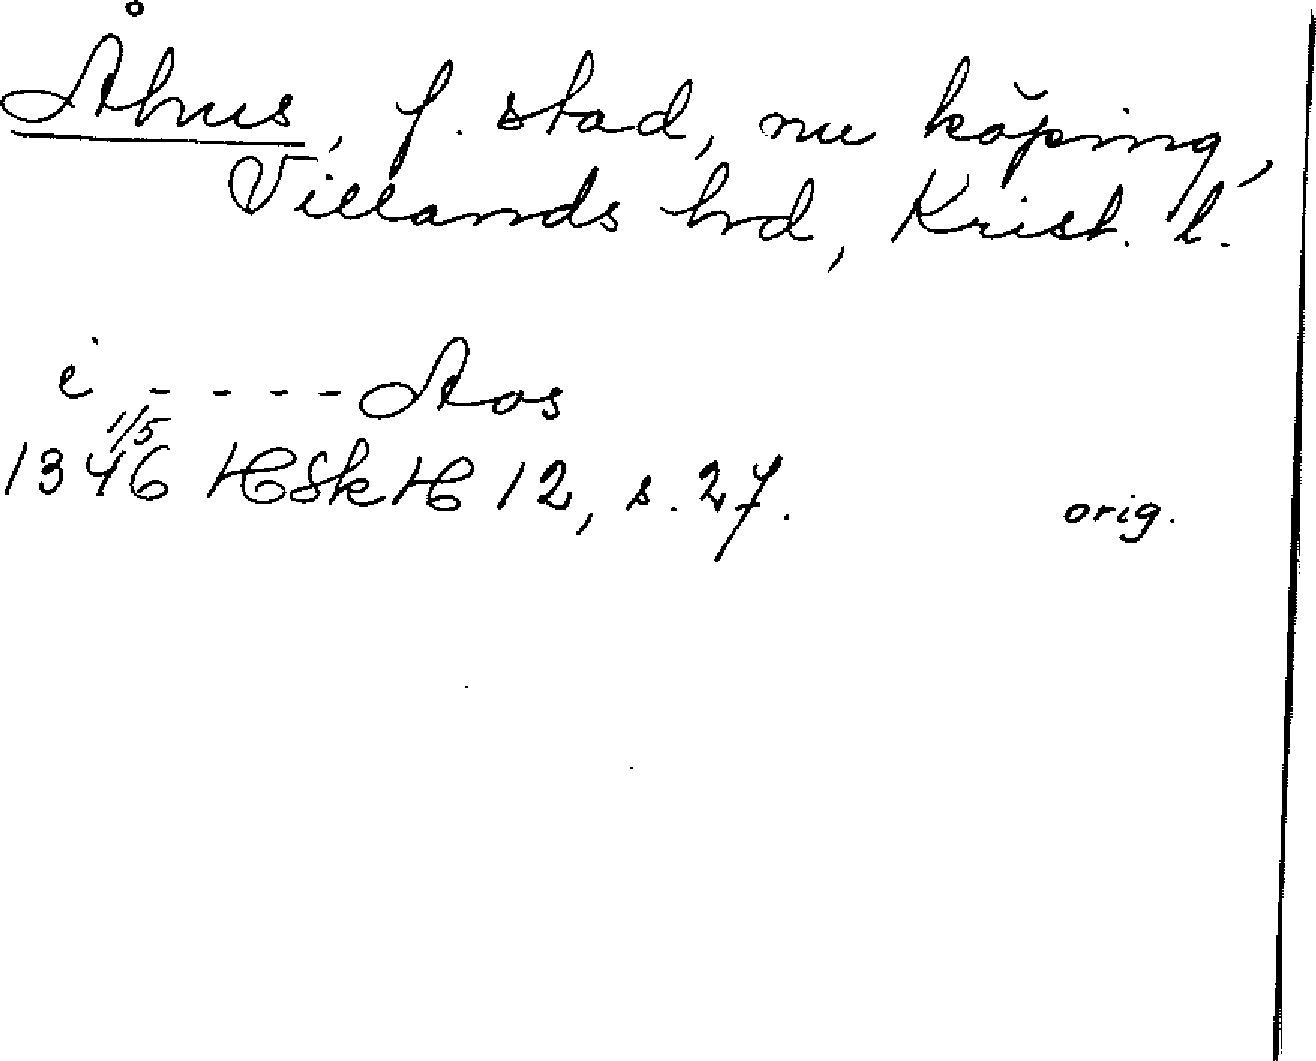 Åhus, f. stad, nu köping,
Villands hrd, Krist. l.
i - - - - Aos
1/5
1346 HSkH 12, s. 27. orig.